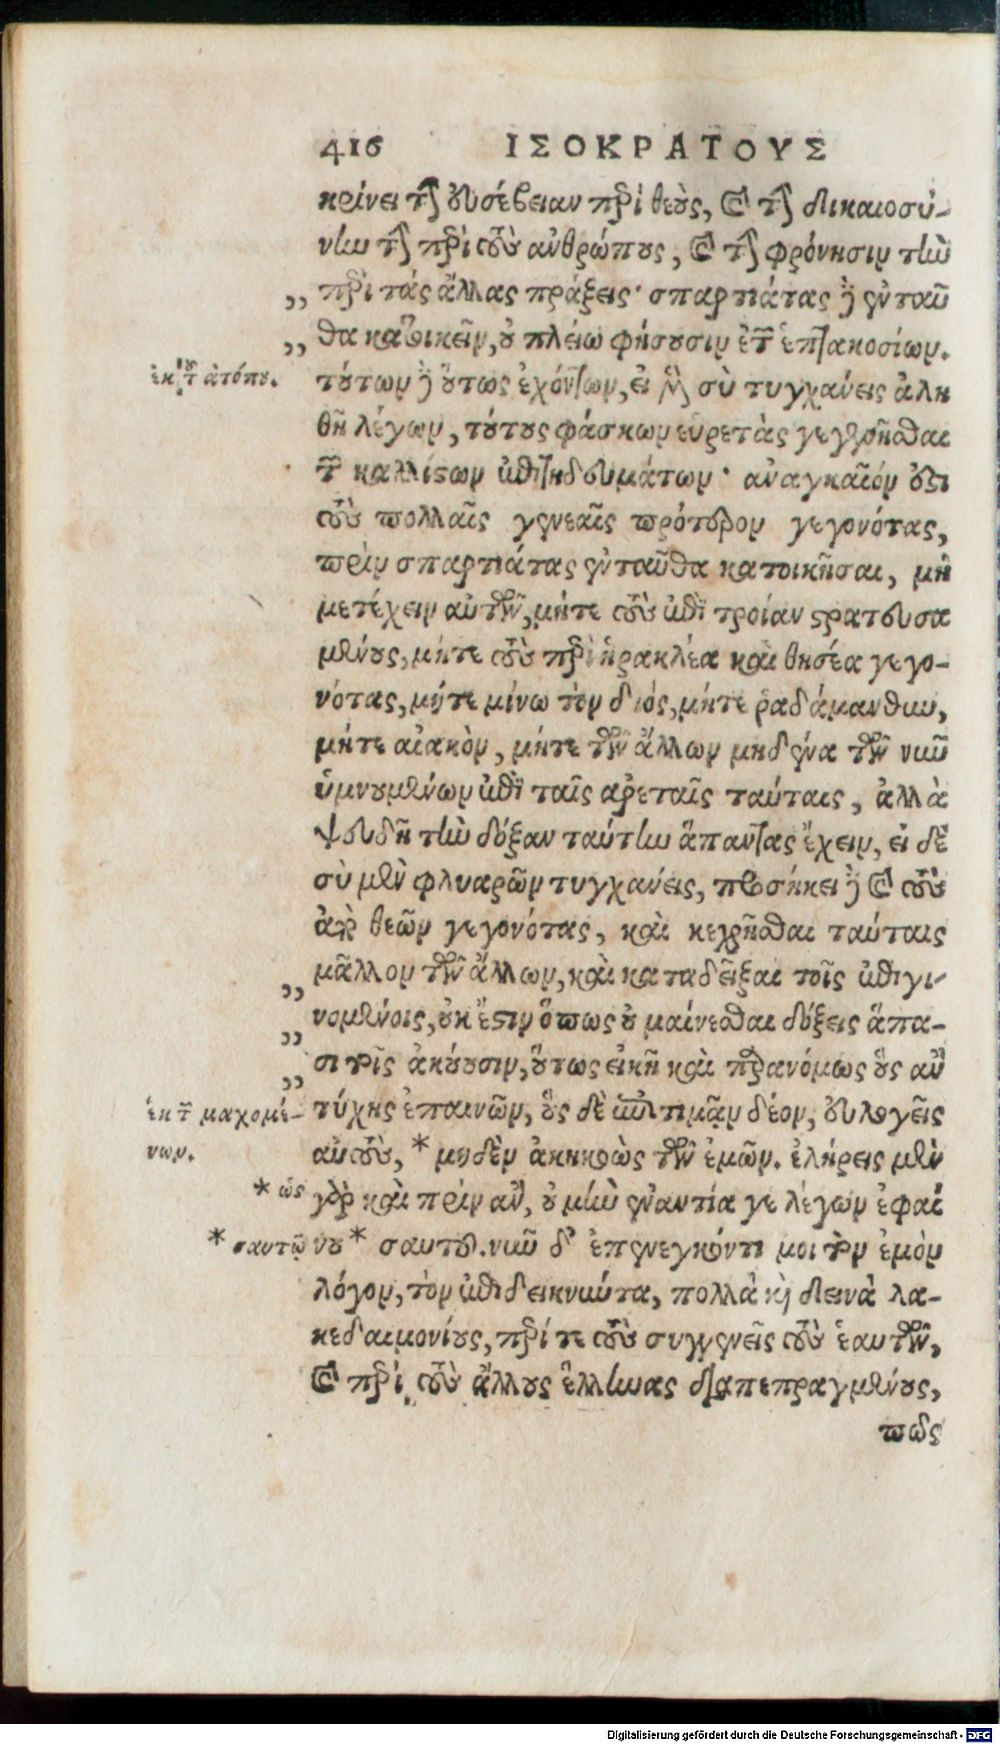 416 ΙΣΟΚΡΑΤΟΥΣ
κρίνει τὴν εὐσέβειαν περὶ θεοὺς, καὶ τὴν δικαιοσύ-
νην τὴν περὶ τοὺς ἀνθρώπους, καὶ τὴν φρόνησιν τὴν
,, περὶ τάς ἄλλας πράξεις· σπαρτιάτας δὲ ἐνταῦ
,, θα κατοικεῖν, οὐ πλείω φήσουσιν ἐτῶν ἑπτακοσίων.
ἐκ τοῦ ἀτόπου.
τούτων δὲ οὕτως ἐχόντων, εἰ μὲν σὺ τυγχάνεις ἀλη
θῆ λέγων, τούτους φάσκων εὑρετὰς γεγενῆσθαι
τῶν καλλίστων ἐπιτηδευμάτων· ἀναγκαῖόν ἐστι
τοὺς πολλαῖς γενεαῖς πρότερον γεγονότας,
πρὶν σπαρτιάτας ἐνταῦθα κατοικῆσαι, μὴ
μετέχειν αὐτῶν, μήτε τοὺς ἐπὶ τροίαν στρατευσα
μένους, μήτε τοὺς περὶ ἡρακλέα καὶ θησέα γεγο-
νότας, μήτε μίνω τὸν διός, μήτε ῥαδάμανθυν,
μήτε αἰακὸν, μήτε τῶν ἄλλων μηδένα τῶν νῦν
ὑμνουμένων ἐπὶ ταῖς ἀρεταῖς ταύταις, ἀλλὰ
ψευδῆ τὴν δόξαν ταύτην ἅπαντας ἔχειν, εἰ δὲ
σὺ μὲν φλυαρῶν τυγχάνεις, προσήκει δὲ καὶ τοὺς
ἀπὸ θεῶν γεγονότας, καὶ κεχρῆσθαι ταύταις
μᾶλλον τῶν ἄλλων, καὶ καταδεῖξαι τοῖς ἐπιγι-
,, νομένοις, οὐκ ἔστιν ὅπως οὐ μαίνεσθαι δόξεις ἅπα-
,, σι τοῖς ἀκούουσιν, οὕτως εἰκῆ καὶ παρανόμως οὓς ἂν
,, τύχης ἐπαινῶν, οὓς δὲ τιμᾶν δέον, εὐλογεῖς
ἐκ τῶν μαχομέ-
νων.
αὐτοὺς, * μηδὲν ἀκηκοὼς τῶν ἐμῶν. ἐλήρεις μὲν
* ὡς
γὰρ καὶ πρὶν ἂν, οὐ μὴν ἐναντία γε λέγων ἐφαί
* σαυτῷ
νου * σαυτοῦ. νῦν δ' ἐπενεγκόντι μοι τὸν ἐμὸν
λόγον, τὸν ἐπιδεικνύντα, πολλὰ καὶ δεινὰ λα-
κεδαιμονίους, περί τε τοὺς συγγενεῖς τοὺς ἑαυτῶν,
καὶ περὶ τοὺς ἄλλους ἕλληνας διαπεπραγμένους,
πῶς
Digitalisierung gefördert durch die Deutsche Forschungsgemeinschaft - DFG